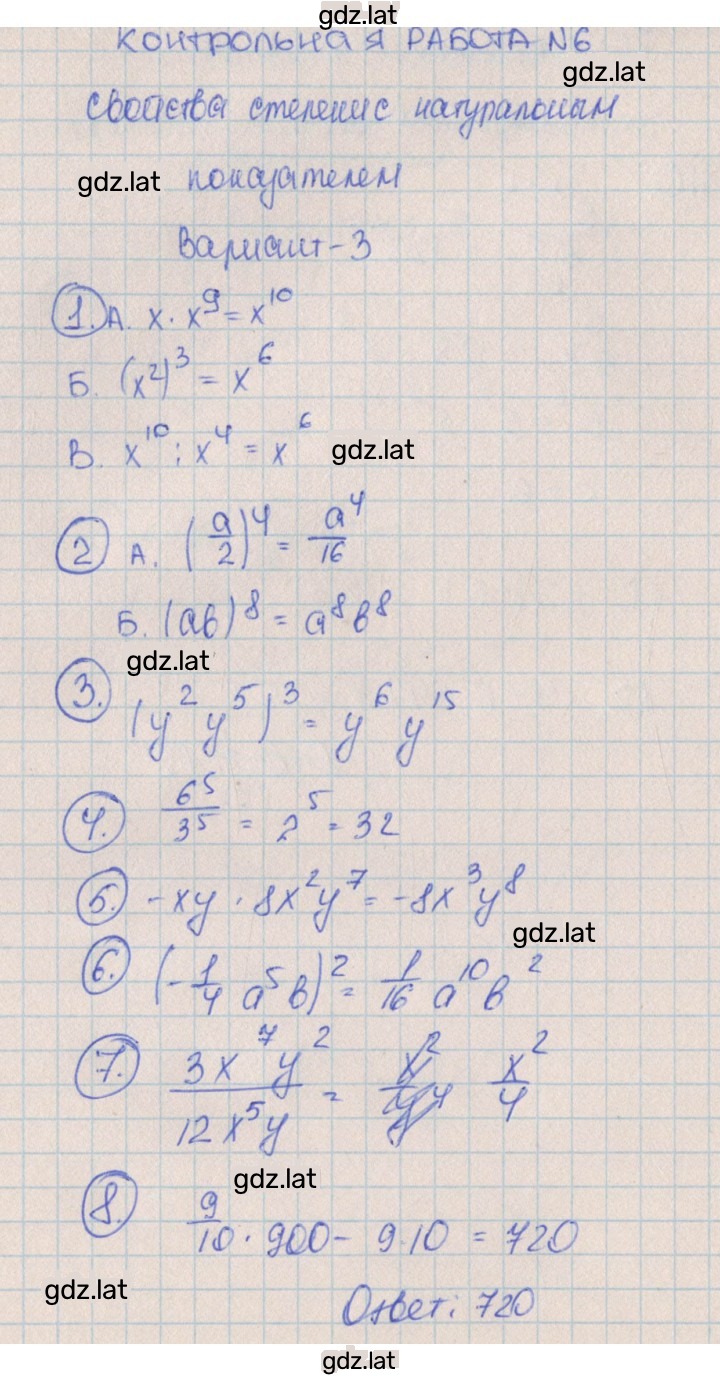 gdz.lat
КОНТРОЛЬНАЯ РАБОТА N6
gdz.lat
свойства степени с натуральным
gdz.lat показателем
Вариант-3
1. А. x · x⁹ = x¹⁰
Б. (x²)³ = x⁶
В. x¹⁰ : x⁴ = x⁶ gdz.lat
2 А. (a/2)⁴ = a⁴/16
Б. (ab)⁸ = a⁸b⁸
gdz.lat
3. (y² y⁵)³ = y⁶ y¹⁵
4. 6⁵/3⁵ = 2⁵ = 32
5. -xy · 8x²y⁷ = -8x³y⁸
gdz.lat
6. (-1/4 a⁵b)² = 1/16 a¹⁰b²
7. 3x⁷y²/12x⁵y = x²/4
gdz.lat
8. 9/10 · 900 - 9·10 = 720
gdz.lat
Ответ: 720
gdz.lat